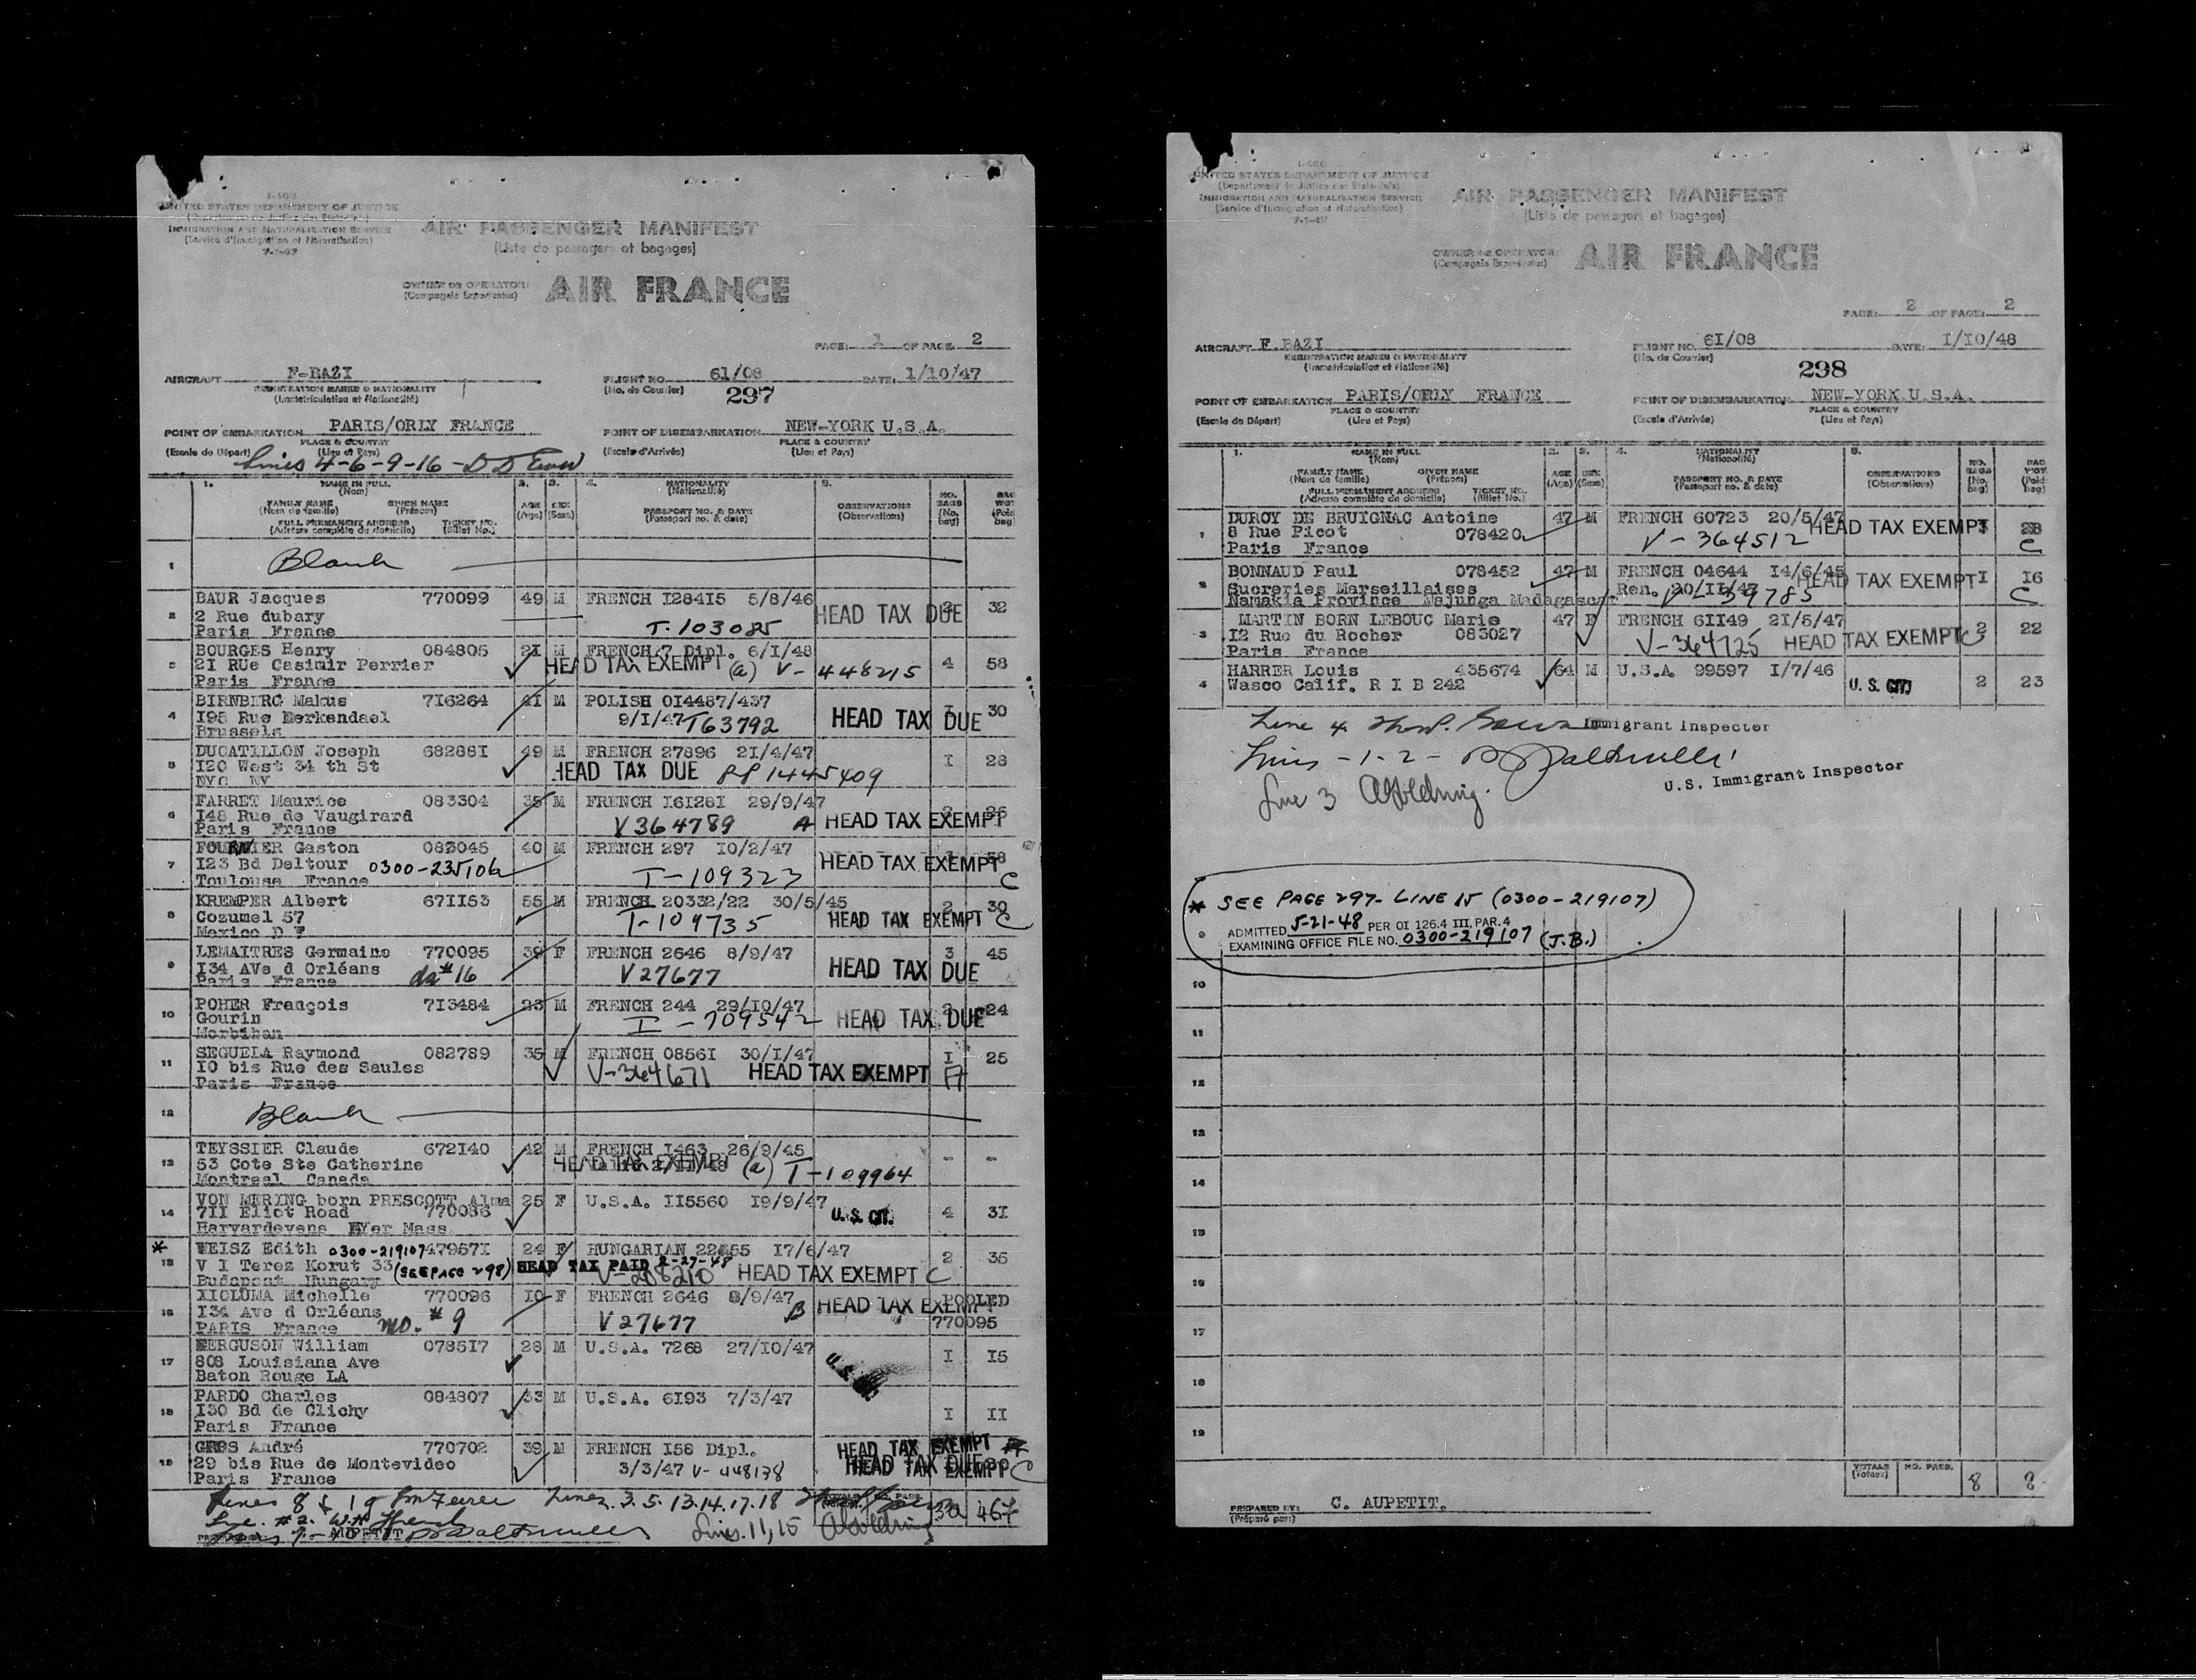 I-466
UNITED STATES DEPARTMENT OF JUSTICE
IMMIGRATION AND NATURALIZATION SERVICE
(Service d'Immigration et Naturalisation)
7-1-47
AIR PASSENGER MANIFEST
(Liste de passagers et bagages)
OWNER OR OPERATOR:
AIR FRANCE
PAGE: 1 OF PAGE 2
AIRCRAFT F-BAZI
REGISTRATION MARKS & NATIONALITY
(Immatriculation et Nationalité)
FLIGHT NO. 61/08 DATE: 1/10/47
(No. de Courrier)
297
POINT OF EMBARKATION PARIS/ORLY FRANCE
POINT OF DISEMBARKATION NEW-YORK U.S.A.
PLACE & COUNTRY PLACE & COUNTRY
(Escale de Départ) (Lieu et Pays) (Escale d'Arrivée) (Lieu et Pays)
Lines 4-6-9-16-
1. NAME IN FULL 2. 3. 4. NATIONALITY 5.
(Nom) (Nationalité)
FAMILY NAME GIVEN NAME AGE SEX OBSERVATIONS NO. BAGS
(Nom de famille) (Prénom) (Age) (Sexe) PASSPORT NO. & DATE (Observations)
FULL PERMANENT ADDRESS TICKET NO. (Passeport no. & date)
(Adresse complète de domicile) (Billet No.)
1 Blank
2 BAUR Jacques 770099 49 M FRENCH I284I5 5/8/46 HEAD TAX DUE 32
2 Rue dubary
Paris France T-103085
3 BOURGES Henry 084805 2I M FRENCH/7 Dipl. 6/I/48
2I RUe Casimir Perrier HEAD TAX EXEMPT (a) V-448215 4 58
Paris France
4 BIRNBERG Makus 7I6264 4I M POLISH 0I4487/437 I 30
I95 Rue Merkendael 9/I/47 T63792 HEAD TAX DUE
Brussels
5 DUCATILLON Joseph 68288I 49 M FRENCH 27896 2I/4/47
I20 West 34 th St HEAD TAX DUE I 28
NYC NY
6 FARRET Maurice 083304 35 M FRENCH I6I28I 29/9/47
I48 Rue de Vaugirard V364789 A HEAD TAX EXEMPT
Paris France
7 FOURNIER Gaston 083045 40 M FRENCH 297 I0/2/47
I23 Bd Deltour 0300-235106 HEAD TAX EXEMPT 58
Toulouse France T-109323 C
8 KREMPER Albert 67II53 55 M FRENCH 20332/22 30/5/45 2 30
Cozumel 57 T-109735 HEAD TAX EXEMPT C
Mexico D F
9 LEMAITRES Germaine 770095 39 F FRENCH 2646 8/9/47 3 45
I34 AVe d Orléans da #16 V27677 HEAD TAX DUE
Paris France
10 POHER François 7I3484 23 M FRENCH 244 29/I0/47 2 24
Gourin HEAD TAX DUE
Morbihan
11 SEGUELA Raymond 082789 35 M FRENCH 0856I 30/I/47 I 25
I0 bis Rue des Saules V-364671 HEAD TAX EXEMPT A
Paris France
12 Blank
13 TEYSSIER Claude 672I40 42 M FRENCH I463 26/9/45
53 Cote Ste Catherine HEAD TAX EXEMPT (a) T-109964 - -
Montreal Canada
14 VON MERING born PRESCOTT Alma 25 F U.S.A. II5560 I9/9/47
7II Eliot Road 770086 U.S. CIT. 4 3I
Harvardevens Mass
* 15 WEISZ Edith 0300-219107 47957I 24 F HUNGARIAN I7/6/47 2 35
V I Terez Korut 33 (SEE PAGE 298) HEAD TAX PAID 2-27-48
Budapest Hungary V-208210 HEAD TAX EXEMPT C
16 XICLUNA Michelle 770096 I0 F FRENCH 2646 8/9/47 POOLED
I34 Ave d Orléans mo. #9 V27677 B HEAD TAX EXEMPT
PARIS France 770095
17 FERGUSON William 0785I7 28 M U.S.A. 7268 27/I0/47
808 Louisiana Ave I I5
Baton Rouge LA
18 PARDO Charles 084807 33 M U.S.A. 6I93 7/3/47
I30 Bd de Clichy I II
Paris France
19 GROS André 770702 39 M FRENCH I58 Dipl. HEAD TAX EXEMPT
29 bis Rue de Montevideo 3/3/47 V-448138 HEAD TAX EXEMPT C
Paris France
Lines 8 & 19 Lines 3.5.13.14.17.18
Lines 11,15 467
AUPETIT
I-466
UNITED STATES DEPARTMENT OF JUSTICE
(Departement de Justice des Etats-Unis)
IMMIGRATION AND NATURALIZATION SERVICE
(Service d'Immigration et Naturalisation)
7-1-47
AIR PASSENGER MANIFEST
(Liste de passagers et bagages)
OWNER OR OPERATOR:
AIR FRANCE
PAGE: 2 OF PAGE: 2
AIRCRAFT F.BAZI
REGISTRATION MARKS & NATIONALITY
(Immatriculation et Nationalité)
FLIGHT NO. 6I/08 DATE: I/I0/48
(No. de Courrier)
298
POINT OF EMBARKATION PARIS/ORLY FRANCE
POINT OF DISEMBARKATION NEW-YORK U.S.A.
PLACE & COUNTRY PLACE & COUNTRY
(Escale de Départ) (Lieu et Pays) (Escale d'Arrivée) (Lieu et Pays)
1. NAME IN FULL 2. 3. 4. NATIONALITY 5.
(Nom) (Nationalité)
FAMILY NAME GIVEN NAME AGE SEX OBSERVATIONS NO. BAGS
(Nom de famille) (Prénom) (Age) (Sexe) PASSPORT NO. & DATE (Observations)
FULL PERMANENT ADDRESS TICKET NO. (Passeport no. & date)
(Adresse complète de domicile) (Billet No.)
1 DUROY DE BRUIGNAC Antoine 47 M FRENCH 60723 20/5/47
8 Rue Picot 078420 HEAD TAX EXEMPT
Paris France V-364512 C
2 BONNAUD Paul 078452 47 M FRENCH 04644 I4/6/45 I I6
Sucreries Marseillaises Ren. HEAD TAX EXEMPT C
Namakia Province Majunga Madagascar
3 MARTIN BORN LEBOUC Marie 47 F FRENCH 6II49 2I/5/47 2 22
I2 Rue du Rocher 083027 V-364725 HEAD TAX EXEMPT C
Paris France
4 HARRER Louis 435674 64 M U.S.A. 99597 I/7/46
Wasco Calif. R I B 242 U.S. CIT. 2 23
Line 4 Immigrant Inspector
Lines -1-2-
U.S. Immigrant Inspector
Line 3
* SEE PAGE 297- LINE 15 (0300-219107)
9 ADMITTED 5-21-48 PER OI 126.4 III, PAR. 4
EXAMINING OFFICE FILE NO. 0300-219107 (J.B.)
10
11
12
13
14
15
16
17
18
19
TOTALS NO. PASS. 8
(Totaux)
PREPARED BY: C. AUPETIT.
(Préparé par:)